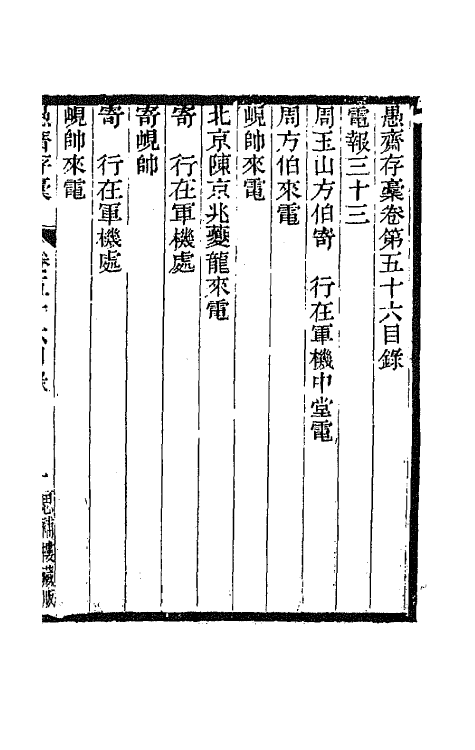 愚齋存稾卷第五十六目錄
電報三十三
周玉山方伯寄　行在軍機中堂電
周方伯來電
峴帥來電
北京陳京兆夔龍來電
寄　行在軍機處
寄峴帥
寄　行在軍機處
峴帥來電
愚齋存稾　卷五十六目錄　一　思補樓藏版